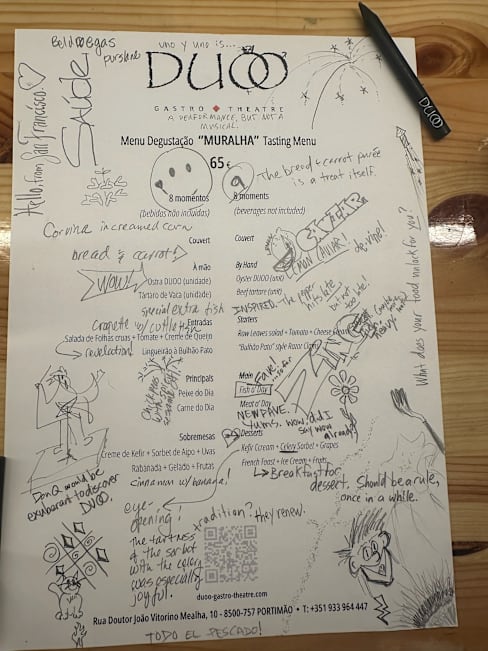 Beldroegas
purslane
uno y uno is...
DUOO
GASTRO THEATRE
A PERFORMANCE, BUT NOT A
MUSICAL.
Hello, from San Francisco.
SAÚDE
Menu Degustação "MURALHA" Tasting Menu
65€
The bread + carrot purée
is a treat itself.
8 momentos
8 moments
(bebidas não incluídas)
(beverages not included)
Corvina in creamed corn
Couvert
Couvert
bread & carrot!
LEMON CAVIAR!
divine!
À mão
By Hand
WOW!
Ostra DUOO (unidade)
Oyster DUOO (uni)
Tártaro de Vaca (unidade)
Beef tartare (uni)
special extra fish
INSPIRED. The paper
hits late
but not
too late!
Croquete w/ cuttlefish
Entradas
Starters
Salada de Folhas cruas + Tomate + Creme de Queijo
Raw Leaves salad + Tomato + Cheese Cream
revelation!
Lingueirão à Bulhão Pato
"Bulhão Pato" style Razor Clams
What does your food unlock for you?
Principais
Main
Fave!
...so far
Peixe do Dia
Fish of Day
Carne do Dia
Meat of Day
NEW FAVE.
Yums. wow. did I
say wow
already?
Sobremesas
Desserts
Creme de Kefir + Sorbet de Aipo + Uvas
Kefir Cream + Celery Sorbet + Grapes
Rabanada + Gelado + Frutas
French Toast + Ice Cream + Fruits
cinnamon w/ banana!
Breakfast for
dessert. Should be a rule,
once in a while.
Don Q would be
exuberant to discover
DUOO.
eye-
opening!
The tartness
of the sorbet
with the celery
was especially
joyful.
tradition? they renew.
duoo-gastro-theatre.com
Rua Doutor João Vitorino Mealha, 10 - 8500-757 PORTIMÃO • T: +351 933 964 447
TODO EL PESCADO!
DUOO